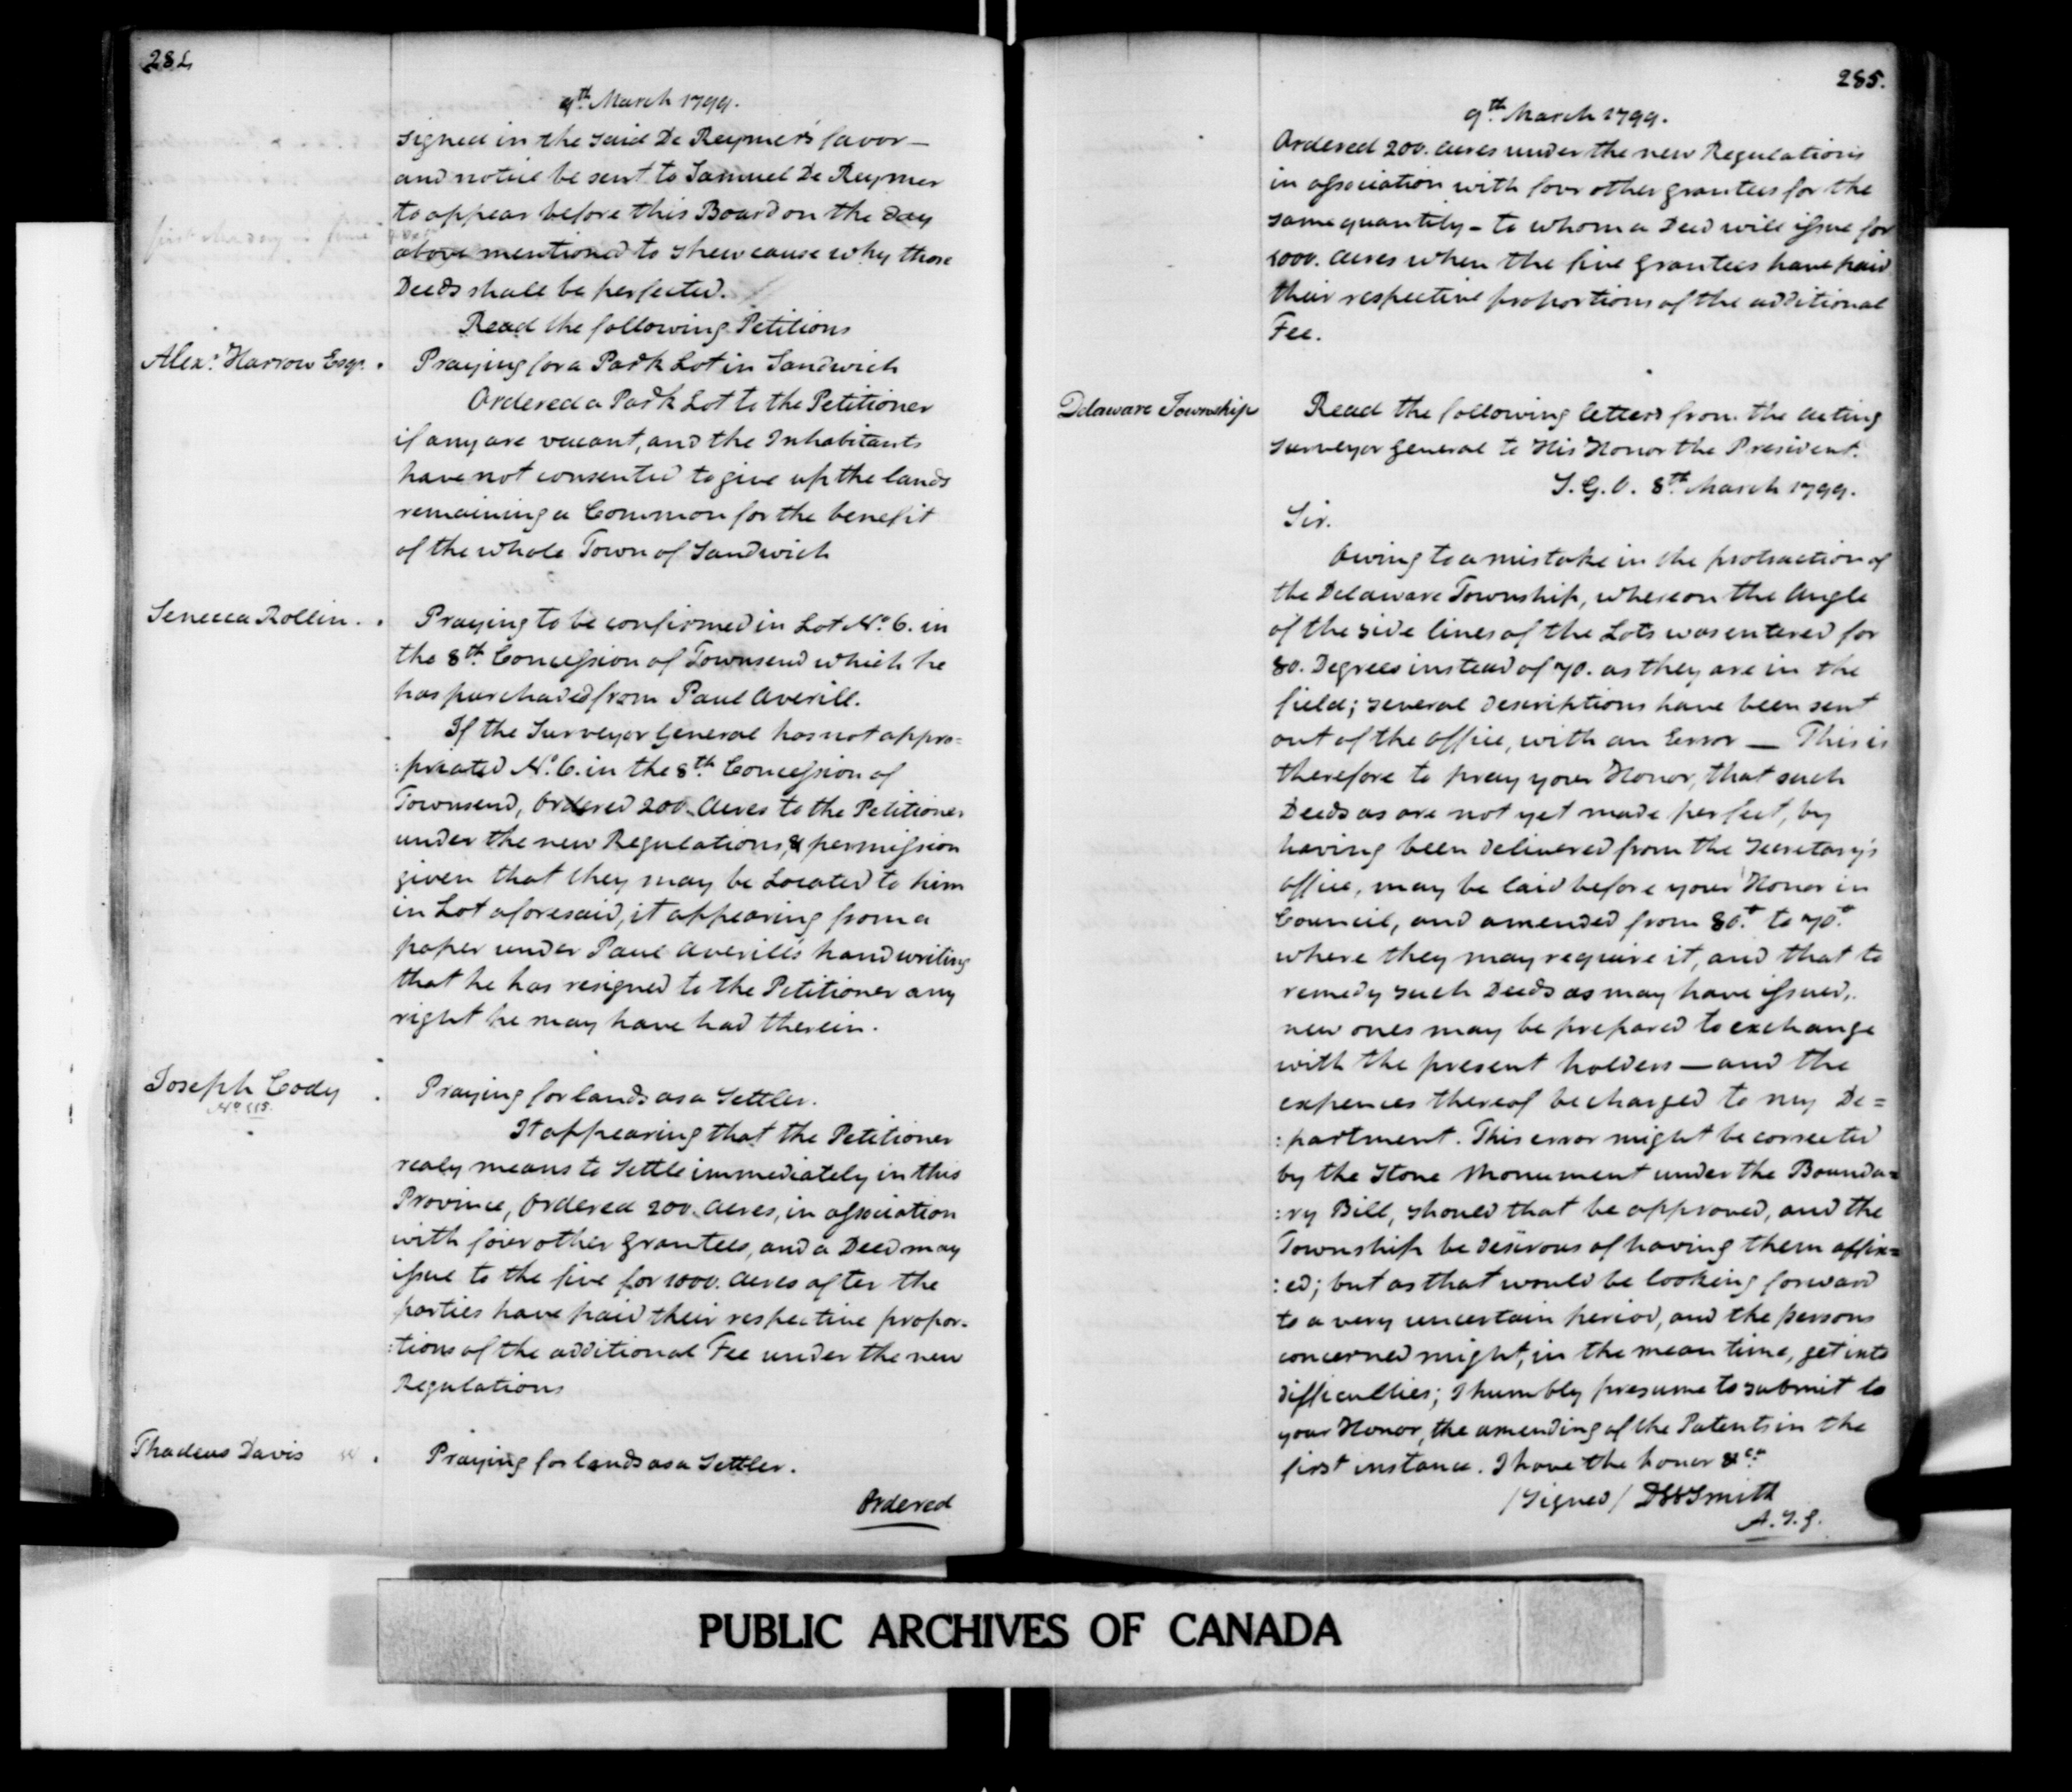 284
9th March 1799.
signed in the said De Reymer's favor —
and notice be sent to Samuel De Reymer
to appear before this Board on the Day
above mentioned to shew cause why those
Deeds shall be perfected.
Read the following Petitions
Alexr. Harrow Esqr. . Praying for a Park Lot in Sandwich
Ordered a Park Lot to the Petitioner
if any are vacant, and the Inhabitants
have not consented to give up the lands
remaining a Common for the benefit
of the whole Town of Sandwich
Senecca Rollin . . Praying to be confirmed in Lot No. 6. in
the 8th. Concession of Townsend which he
has purchased from Paul Averill.
If the Surveyor General has not appro=
:priated No. 6. in the 8th. Concession of
Townsend, Ordered 200. Acres to the Petitioner
under the new Regulations, & permission
given that they may be Located to him
in Lot aforesaid, it appearing from a
paper under Paul Averill's handwriting
that he has resigned to the Petitioner any
right he may have had therein.
Joseph Cody . Praying for lands as a Settler.
No. 115.
It appearing that the Petitioner
realy means to Settle immediately in this
Province, Ordered 200. Acres, in association
with four other Grantees, and a Deed may
issue to the five for 1000. Acres after the
parties have paid their respective propor-
:tions of the additional Fee under the new
Regulations
Thadeus Davis . Praying for lands as a Settler.
Ordered
285.
9th. March 1799.
Ordered 200. Acres under the new Regulations
in association with four other grantees for the
same quantity - to whom a Deed will issue for
1000. Acres when the five Grantees have paid
their respective proportions of the additional
Fee.
Delaware Township Read the following letters from the acting
Surveyor General to His Honor the President.
S. G. O. 8th. March 1799.
Sir.
Owing to a mistake in the protraction of
the Delaware Township, whereon the Angle
of the side lines of the Lots was entered for
80. Degrees instead of 70. as they are in the
field; several descriptions have been sent
out of the office, with an Error — This is
therefore to pray your Honor, that such
Deeds as are not yet made perfect, by
having been delivered from the Secretary's
office, may be laid before your Honor in
Council, and amended from 80.° to 70.°
where they may require it, and that to
remedy such Deeds as may have issued,
new ones may be prepared to exchange
with the present holders — and the
expences thereof be charged to my De=
:partment. This error might be corrected
by the Stone Monument under the Bounda=
:ry Bill, should that be approved, and the
Township be desirous of having them affix=
:ed; but as that would be looking forward
to a very uncertain period, and the persons
concerned might, in the mean time, get into
difficulties; I humbly presume to submit to
your Honor, the amending of the Patents in the
first instance. I have the honor &ca
/Signed/ D W Smith
A. S. G.
PUBLIC ARCHIVES OF CANADA